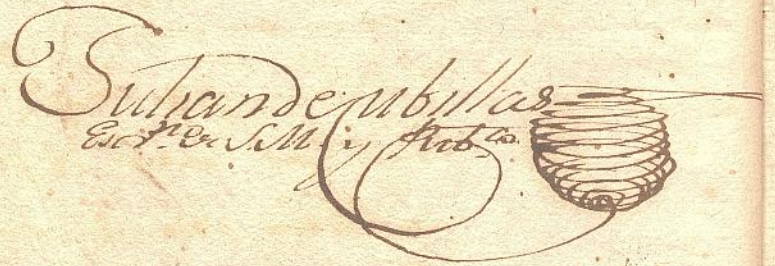 Juliandecubillas
Escrno de S. M. y Pubco